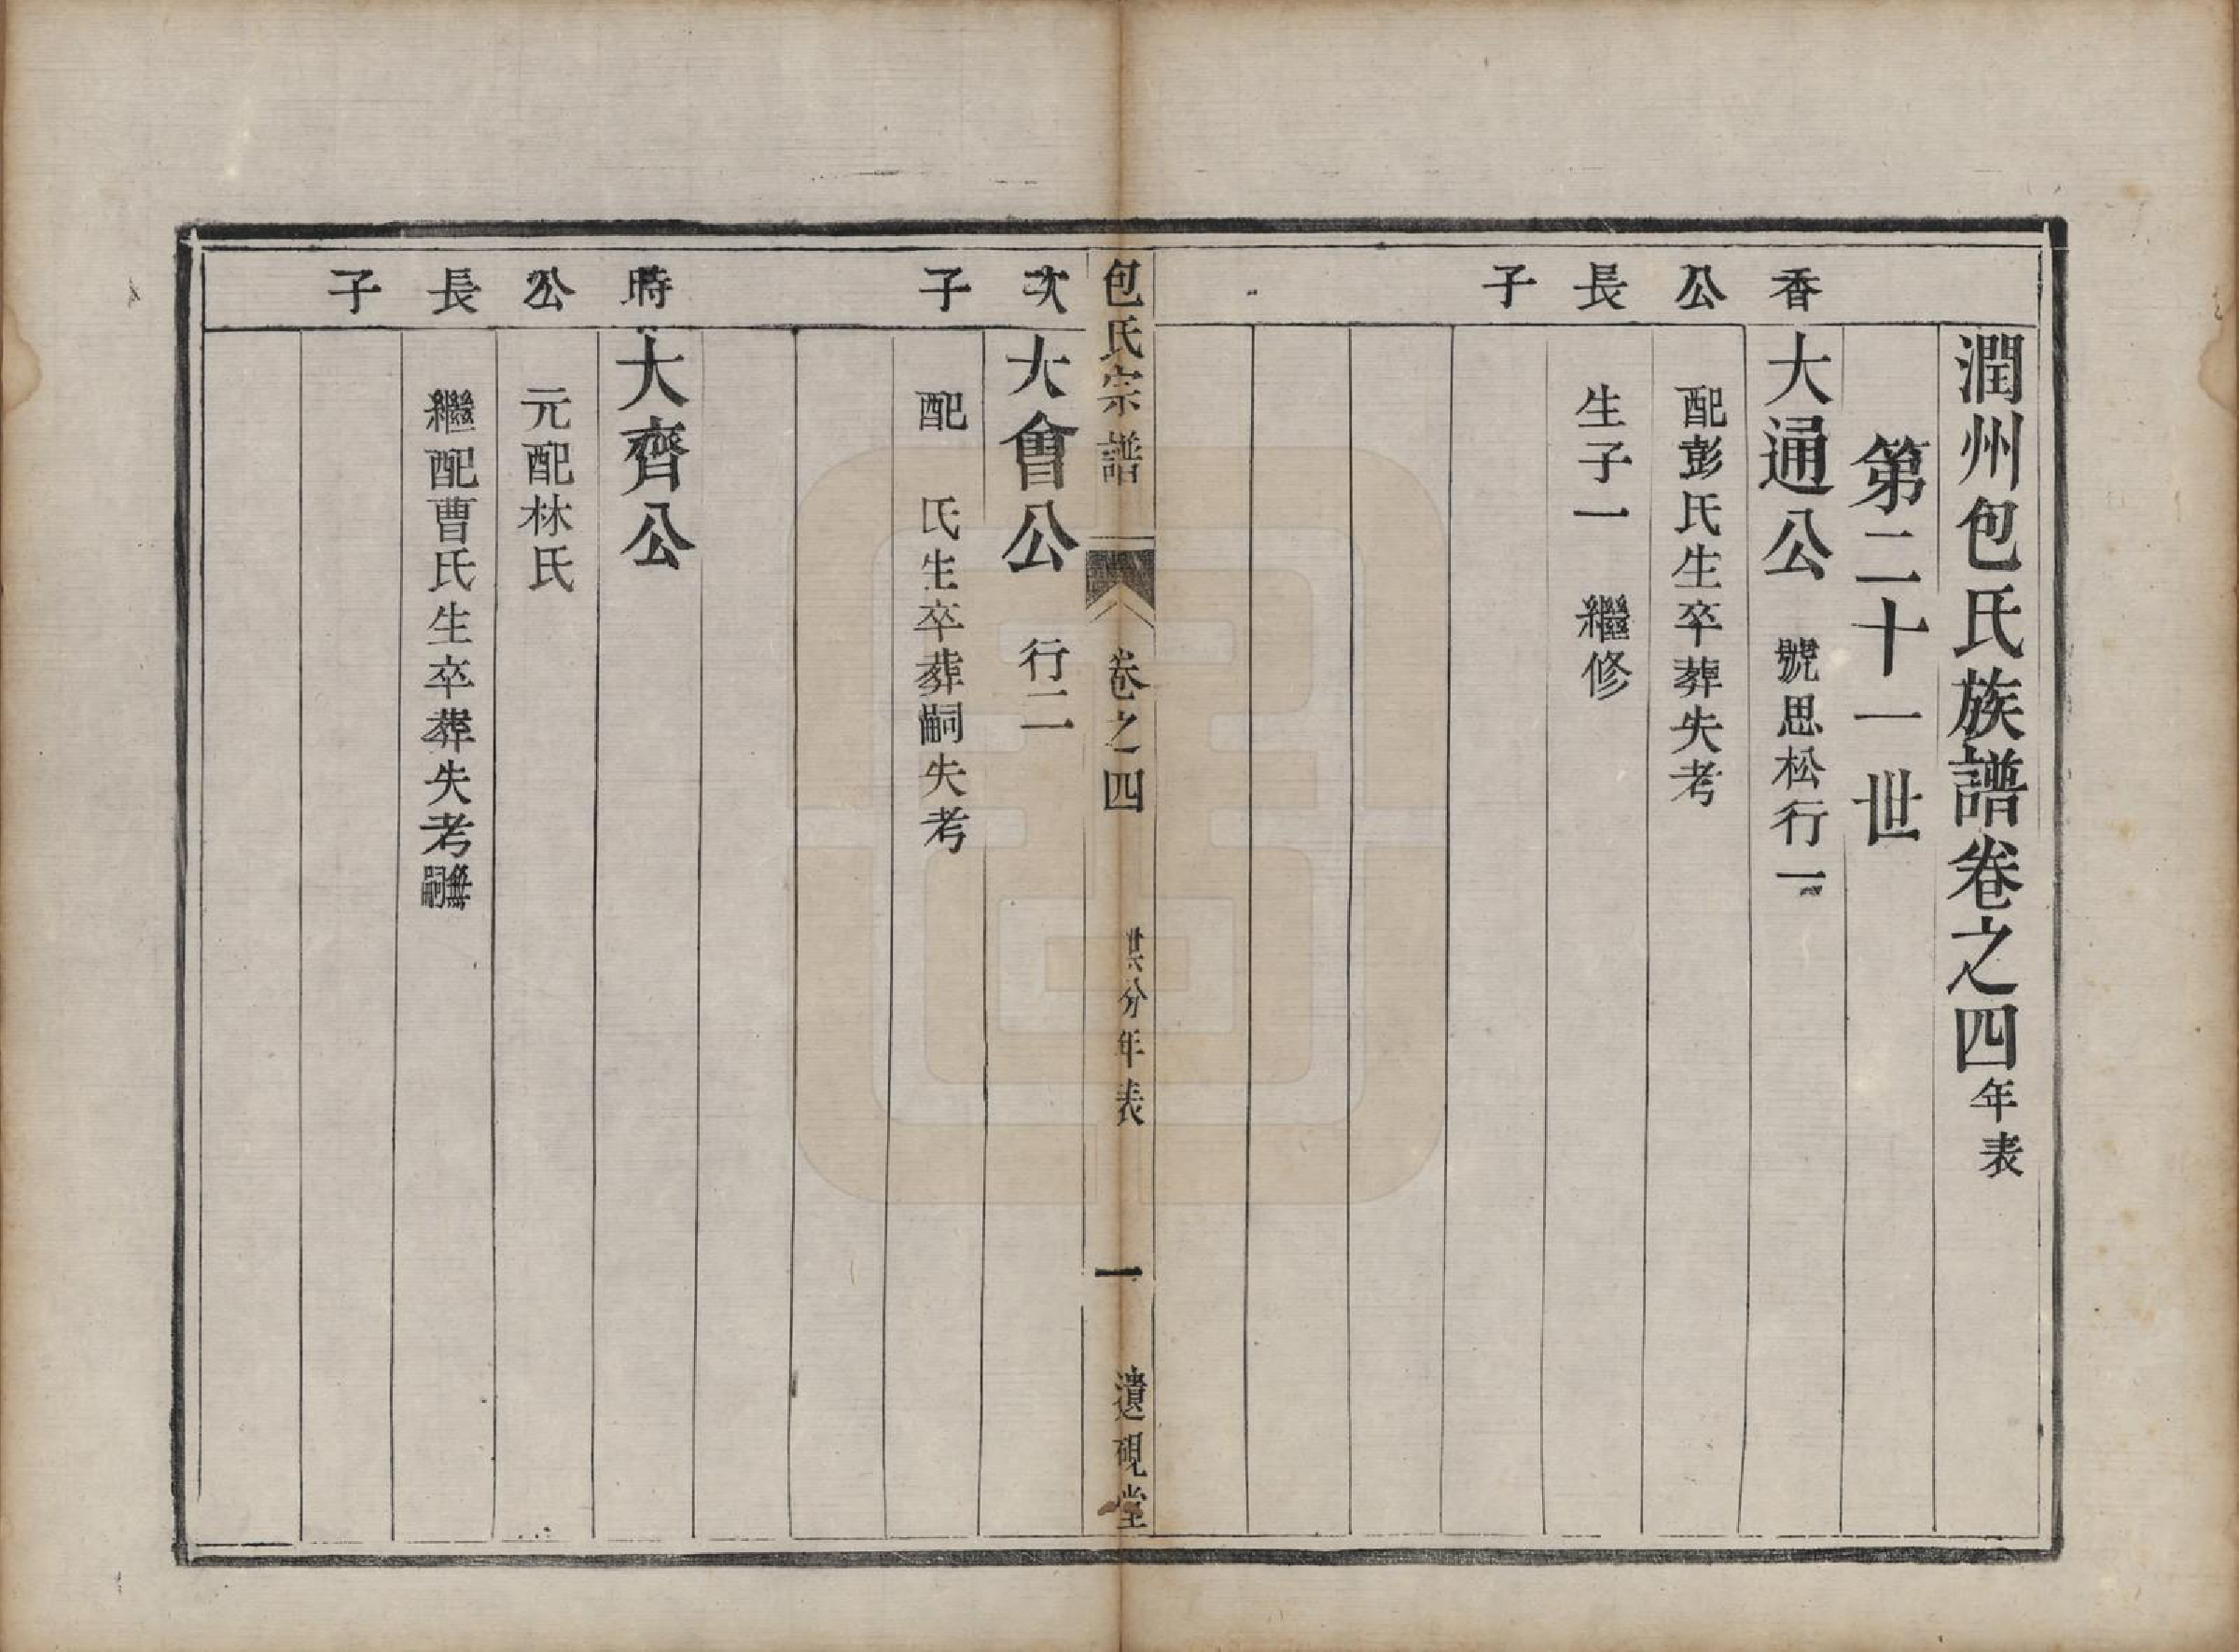 潤州包氏族譜卷之四年表
第二十一世
香公長子
大通公　號思松行一
配彭氏生卒葬失考
生子一　繼修
包氏宗譜　卷之四　世分年表　一　遺硯堂
次子
大會公　行二
配　氏生卒葬嗣失考
時公長子
大齊公
元配林氏
繼配曹氏生卒葬失考無嗣